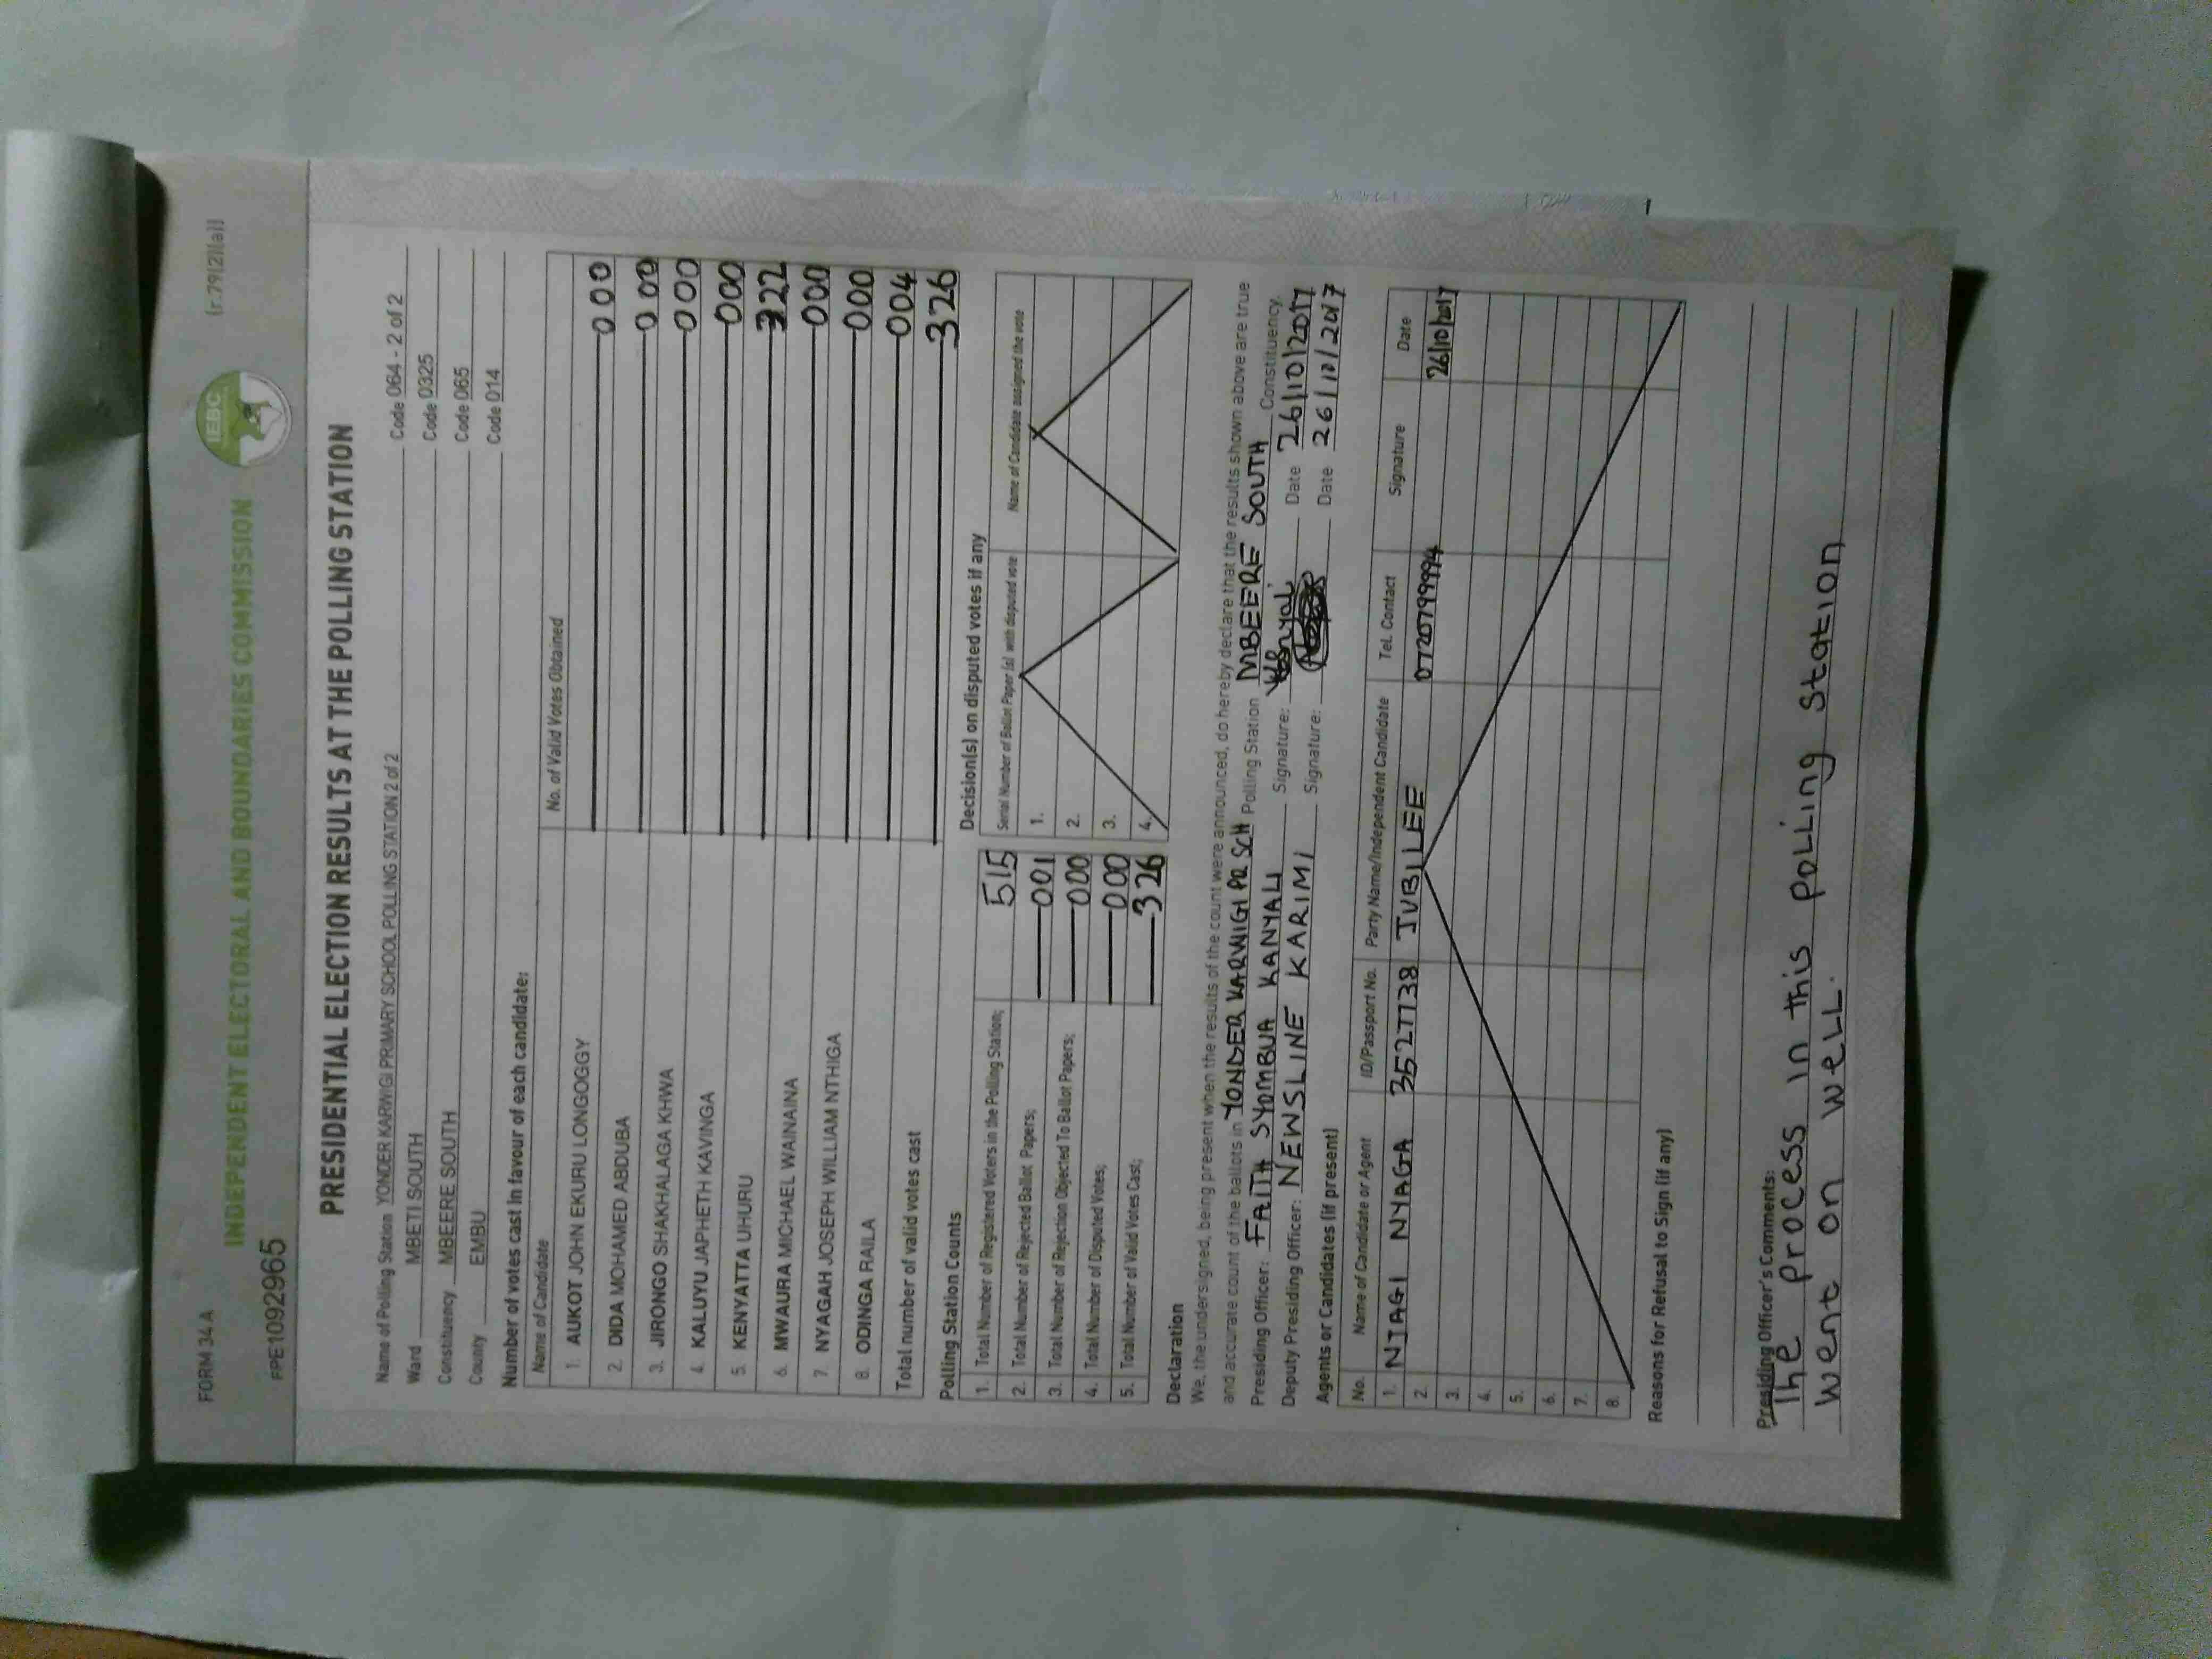 FORM 34A (r.79(2)(a))
INDEPENDENT ELECTORAL AND BOUNDARIES COMMISSION IEBC
FPE10929265
PRESIDENTIAL ELECTION RESULTS AT THE POLLING STATION
Name of Polling Station YONDER KARWIGI PRIMARY SCHOOL POLLING STATION 2 of 2 Code 064 - 2 of 2
Ward MBETI SOUTH Code 0325
Constituency MBEERE SOUTH Code 065
County EMBU Code 014
Number of votes cast in favour of each candidate:
Name of Candidate No. of Valid Votes Obtained
1. AUKOT JOHN EKURU LONGOGGY 000
2. DIDA MOHAMED ABDUBA 000
3. JIRONGO SHAKHALAGA KHWA 000
4. KALUYU JAPHETH KAVINGA 000
5. KENYATTA UHURU 322
6. MWAURA MICHAEL WAINAINA 000
7. NYAGAH JOSEPH WILLIAM NTHIGA 000
8. ODINGA RAILA 004
Total number of valid votes cast 326
Polling Station Counts Decision(s) on disputed votes if any
1. Total Number of Registered Voters in the Polling Station; 515 Serial Number of Ballot Paper (s) with disputed vote Name of Candidate assigned the vote
2. Total Number of Rejected Ballot Papers; 001 1.
3. Total Number of Rejection Objected To Ballot Papers; 000 2.
4. Total Number of Disputed Votes; 000 3.
5. Total Number of Valid Votes Cast; 326 4.
Declaration
We, the undersigned, being present when the results of the count were announced, do hereby declare that the results shown above are true
and accurate count of the ballots in YONDER KARWIGI PR SCH Polling Station MBEERE SOUTH Constituency.
Presiding Officer: FAITH SYOMBUA KANYALI Signature: Date 26/10/2017
Deputy Presiding Officer: NEWSLINE KARIMI Signature: Date 26/10/2017
Agents or Candidates (if present)
No. Name of Candidate or Agent ID/Passport No. Party Name/Independent Candidate Tel. Contact Signature Date
1. NJAGI NYAGA 35277738 JUBILEE 0720799994 26/10/2017
2.
3.
4.
5.
6.
7.
8.
Reasons for Refusal to Sign (if any)
Presiding Officer's Comments:
The process in this polling station
went on well.